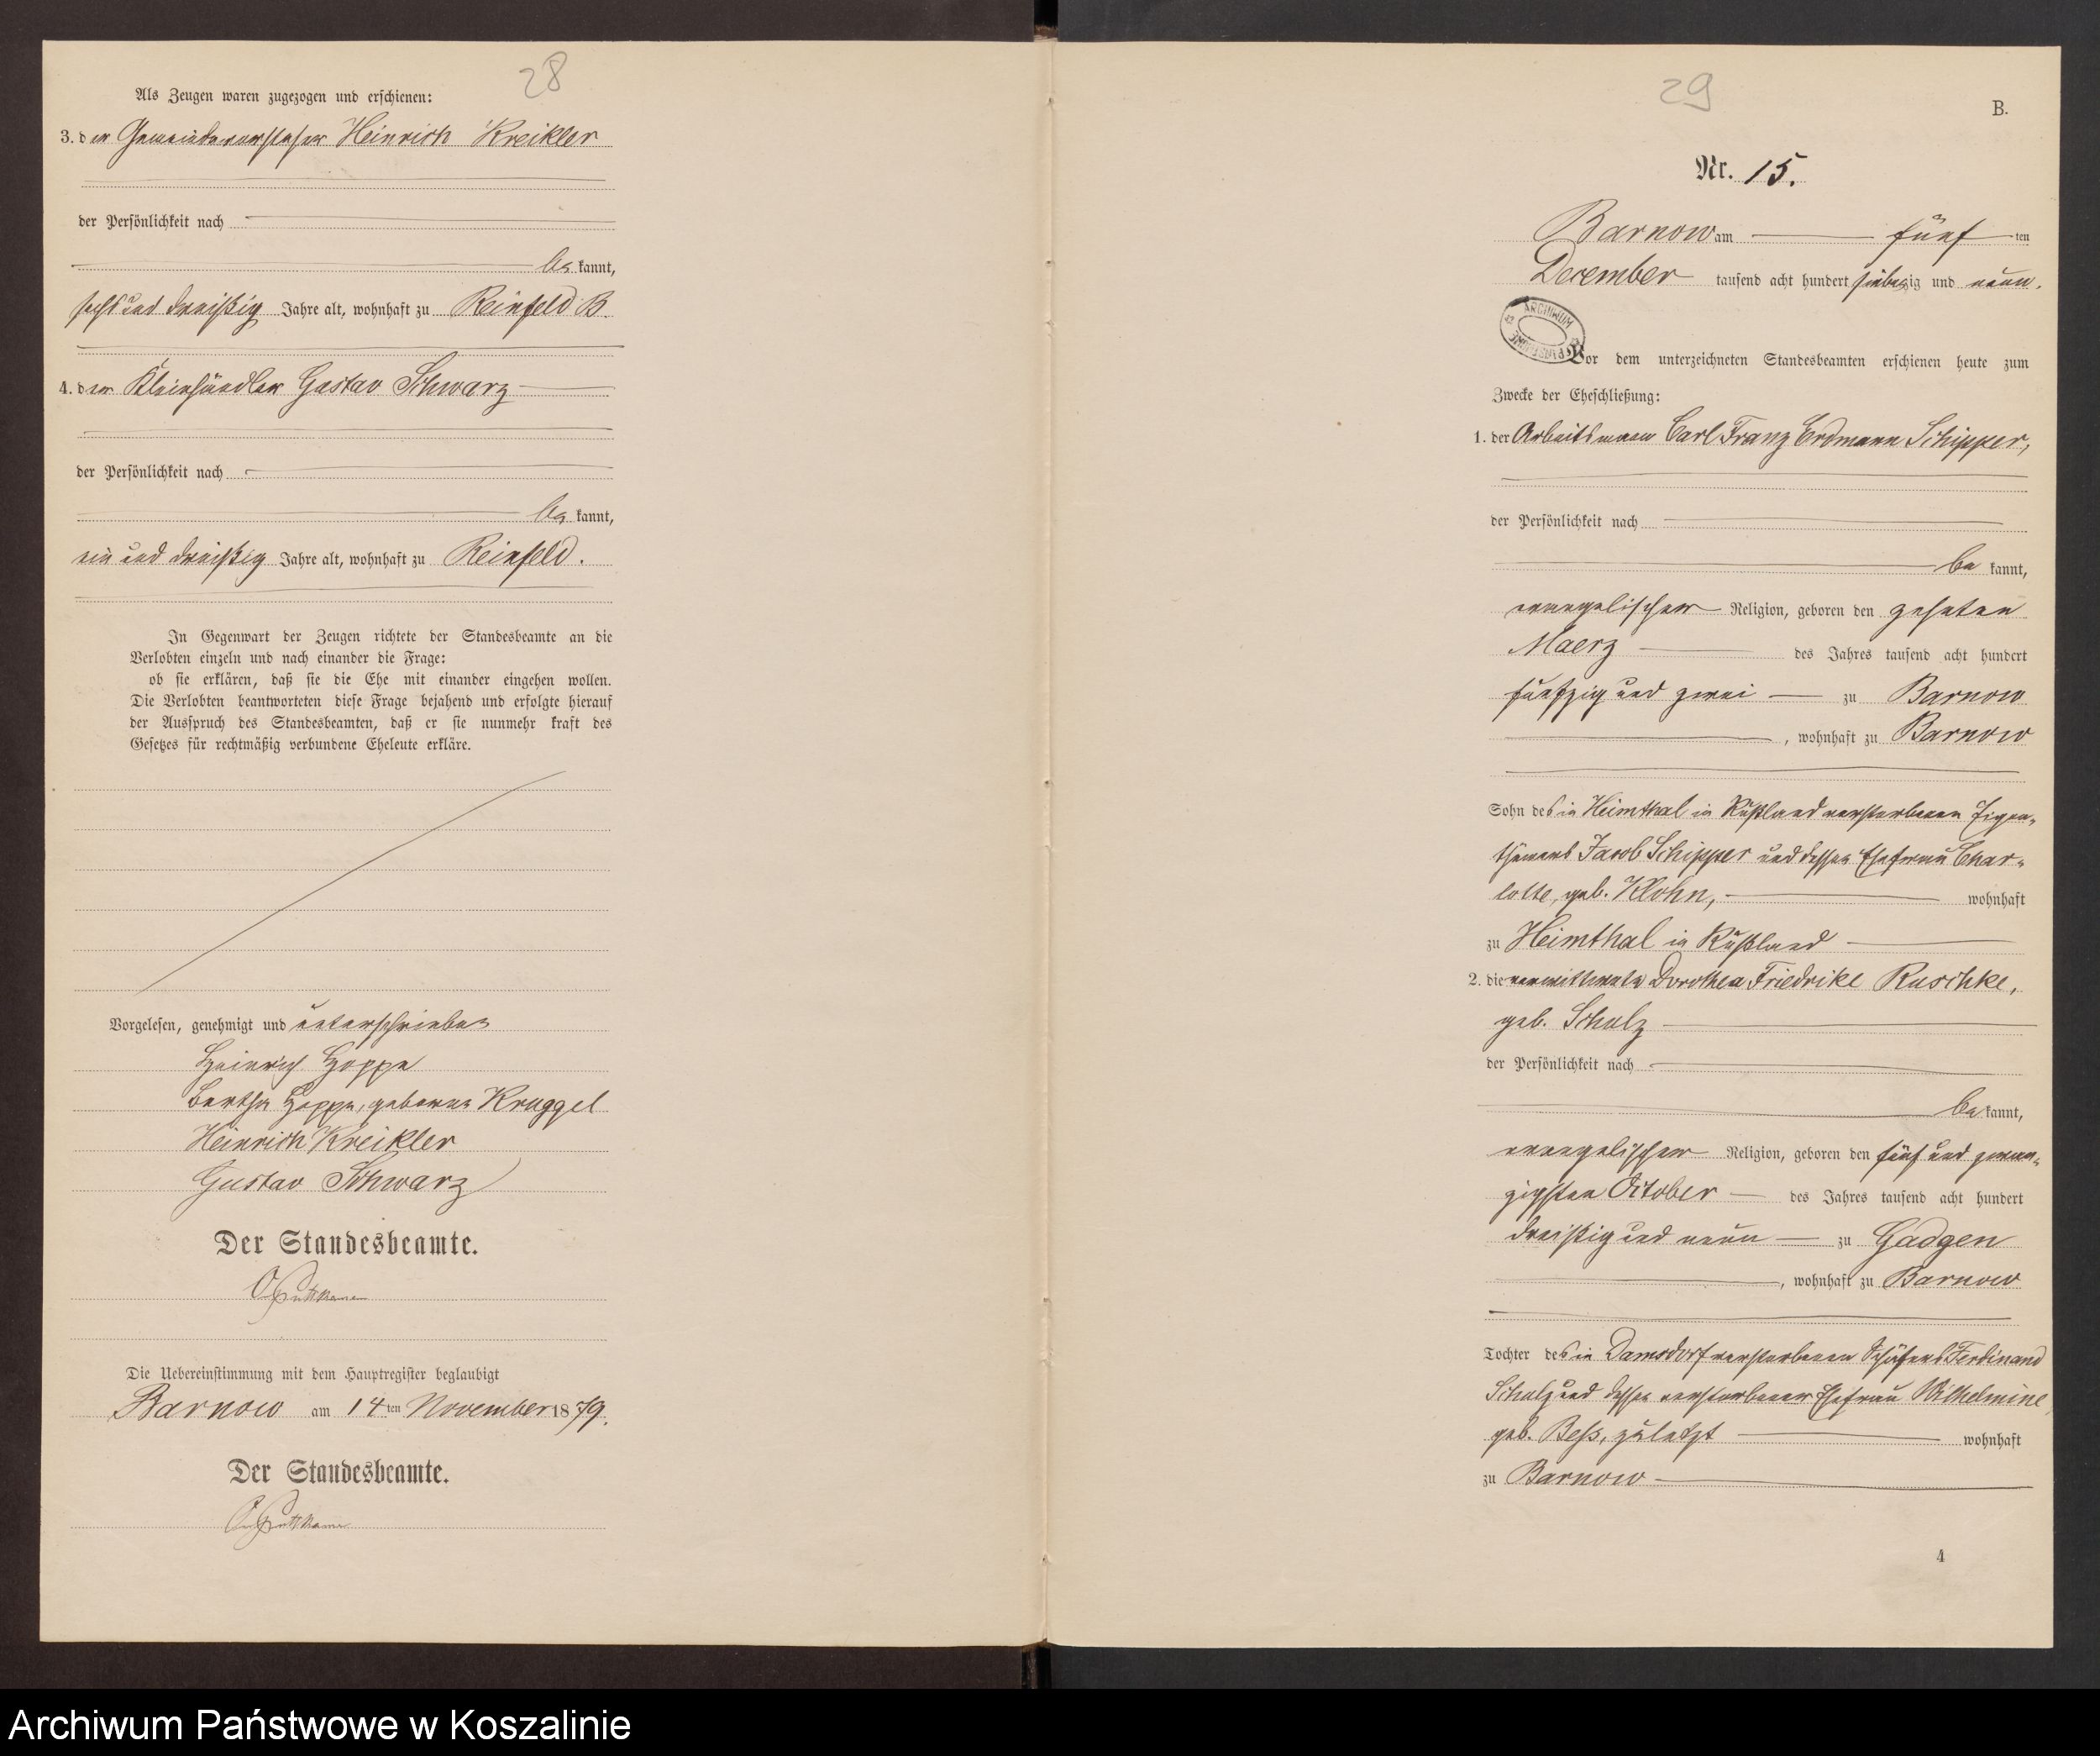 28
Als Zeugen waren zugezogen und erschienen:
3. der Gemeindevorsteher Heinrich Kreikler
der Persönlichkeit nach
be kannt,
sechs und dreißig Jahre alt, wohnhaft zu Reinfeld B.
4. der Kleinhändler Gustav Schwarz
der Persönlichkeit nach
be kannt,
ein und dreißig Jahre alt, wohnhaft zu Reinfeld.
In Gegenwart der Zeugen richtete der Standesbeamte an die
Verlobten einzeln und nach einander die Frage:
ob sie erklären, daß sie die Ehe mit einander eingehen wollen.
Die Verlobten beantworteten diese Frage bejahend und erfolgte hierauf
der Ausspruch des Standesbeamten, daß er sie nunmehr kraft des
Gesetzes für rechtmäßig verbundene Eheleute erkläre.
Vorgelesen, genehmigt und unterschrieben
Heinrich Hoppe
Bertha Hoppe, geborene Kruggel
Heinrich Kreikler
Gustav Schwarz
Der Standesbeamte.
Puttkamer
Die Uebereinstimmung mit dem Hauptregister beglaubigt
Barnow am 14ten November 1879.
Der Standesbeamte.
Puttkamer
29
B.
Nr. 15.
Barnow am fünf ten
December tausend acht hundert siebenzig und neun.
ARCHIWUM
Vor dem unterzeichneten Standesbeamten erschienen heute zum
Zwecke der Eheschließung:
1. der Arbeitsmann Carl Franz Erdmann Schipper,
der Persönlichkeit nach
be kannt,
evangelischer Religion, geboren den zehnten
Maerz des Jahres tausend acht hundert
fünfzig und zwei zu Barnow
, wohnhaft zu Barnow
Sohn des in Heimthal in Rußland verstorbenen Eigen-
thümers Jacob Schipper und dessen Ehefrau Char-
lotte, geb. Klohn, wohnhaft
zu Heimthal in Rußland
2. die verwittwete Dorothea Friedrike Ruschke,
geb. Schulz
der Persönlichkeit nach
be kannt,
evangelischer Religion, geboren den fünf und zwan-
zigsten October des Jahres tausend acht hundert
dreißig und neun zu Gadgen
, wohnhaft zu Barnow
Tochter des in Damsdorf verstorbenen Schäfers Ferdinand
Schulz und dessen verstorbener Ehefrau Wilhelmine,
geb. Bess, zuletzt wohnhaft
zu Barnow
4
Archiwum Państwowe w Koszalinie